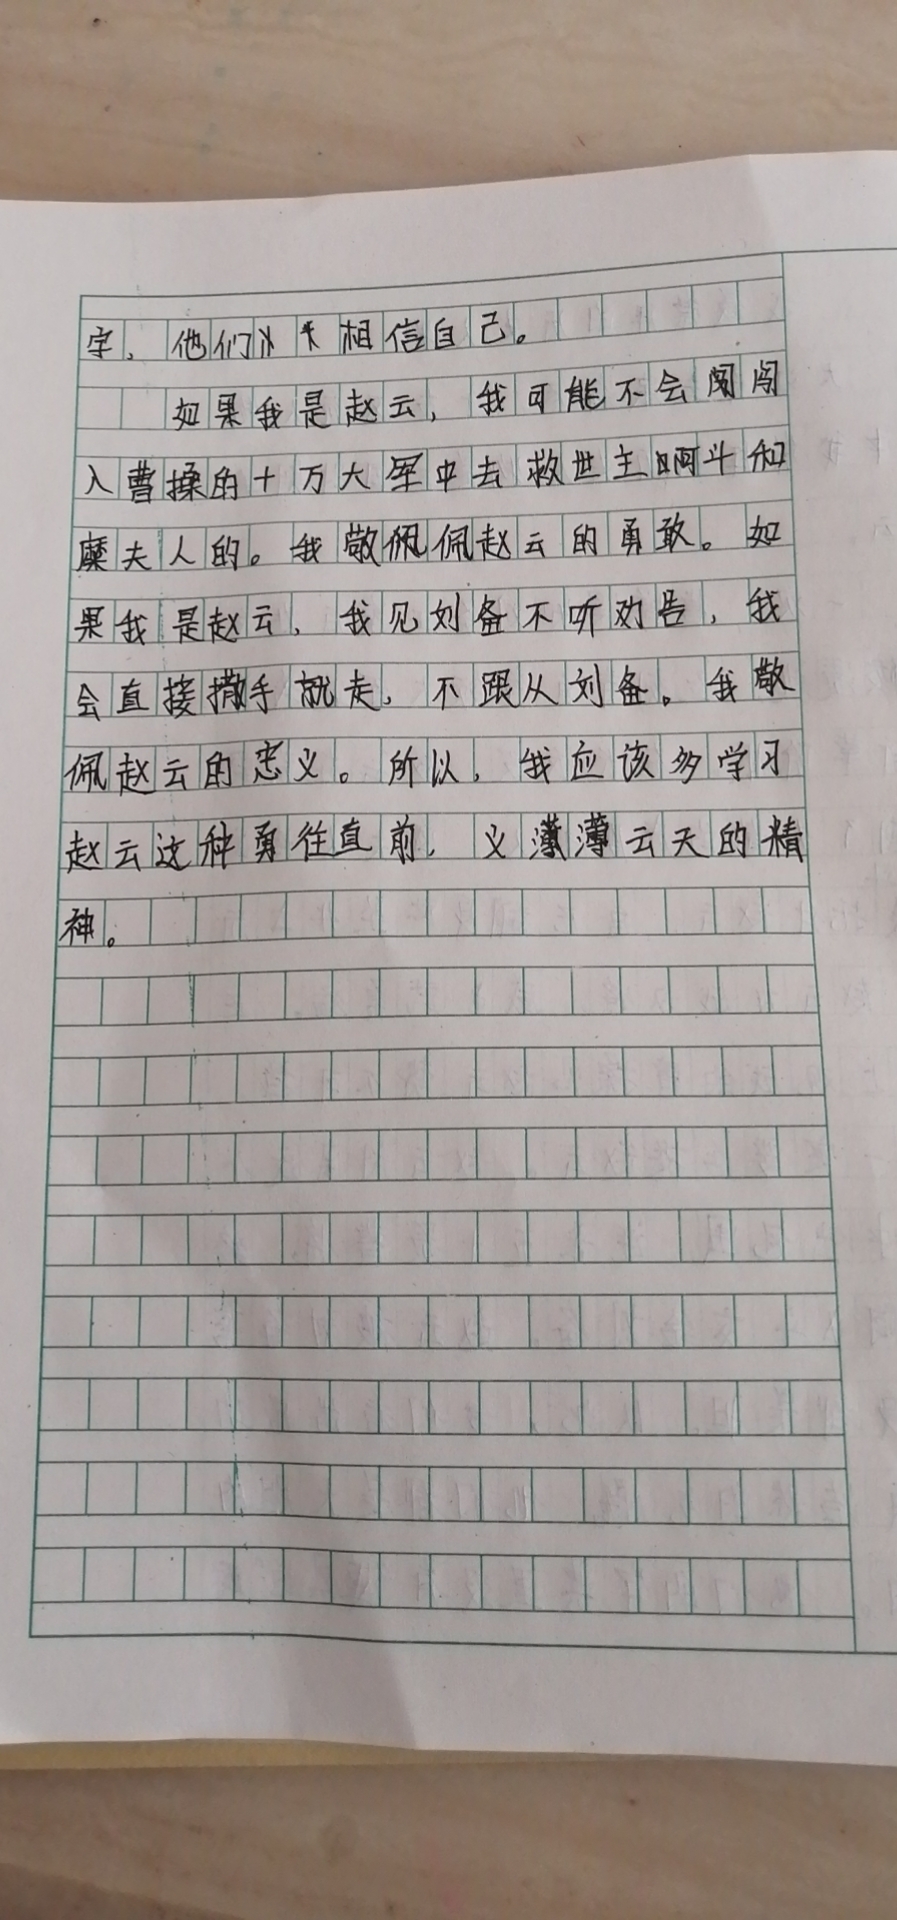 字，他们 相信自己。
如果我是赵云，我可能不会闯闯
入曹操的十万大军中去救世主啊斗和
糜夫人的。我敬佩佩赵云的勇敢。如
果我是赵云，我见刘备不听劝告，我
会直接撒手就走，不跟从刘备。我敬
佩赵云的忠义。所以，我应该多学习
赵云这种勇往直前，义薄薄云天的精
神。